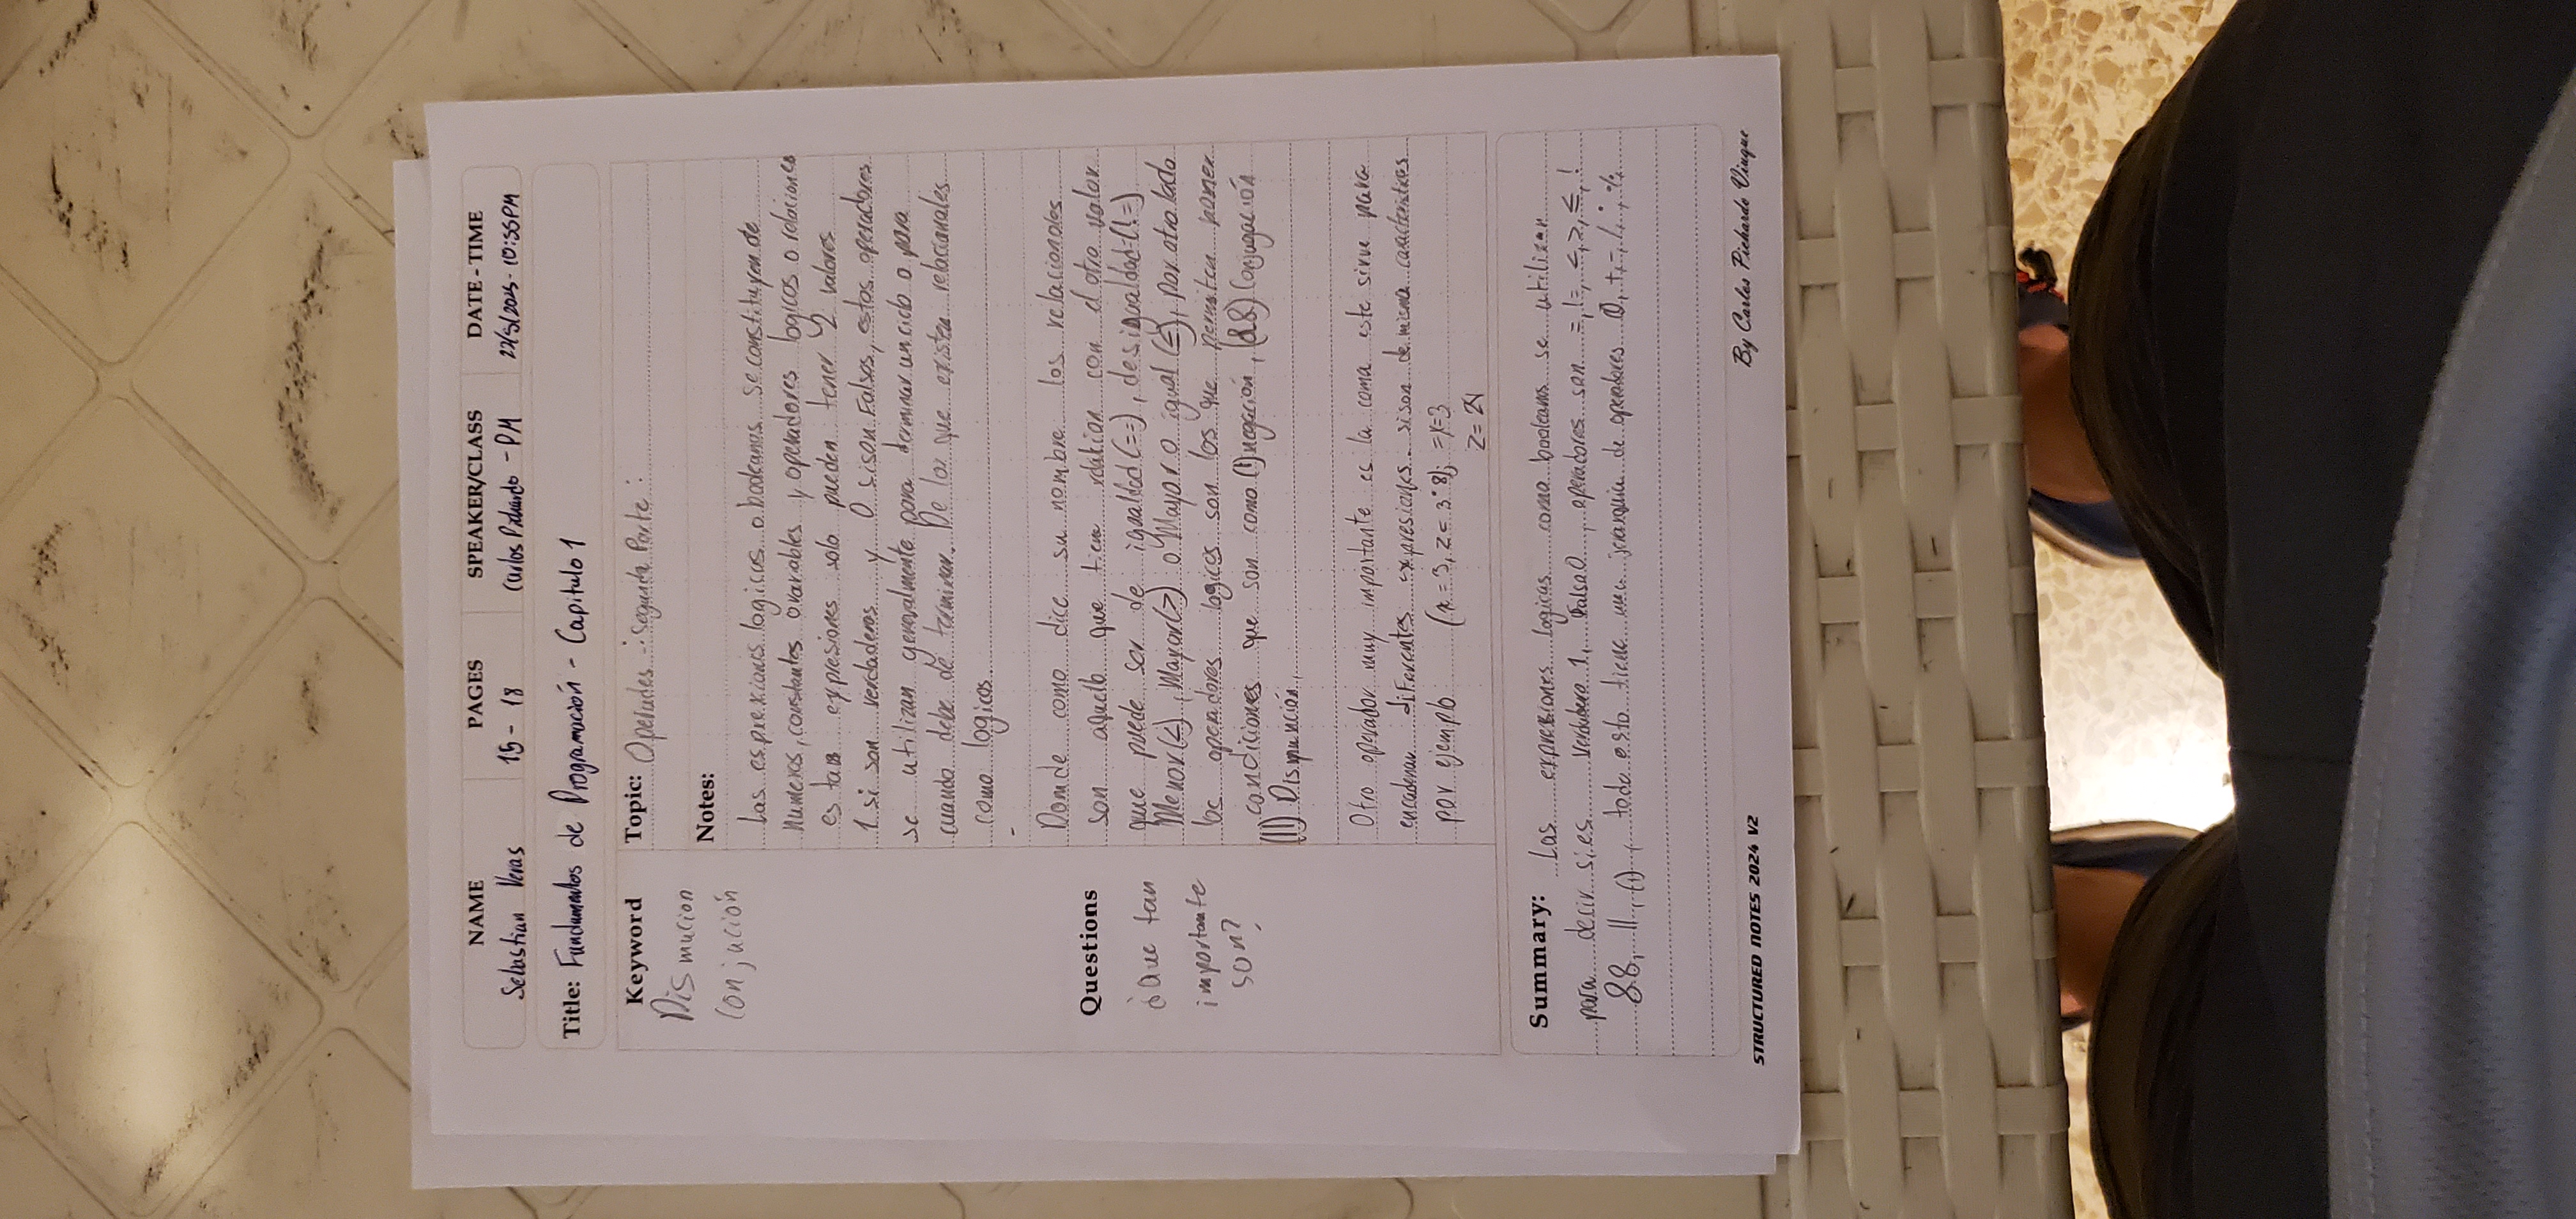 NAME PAGES SPEAKER/CLASS DATE-TIME
Sebastian Veras 15-18 Carlos Pichardo - PM 22/5/2025 - 10:56PM
Title: Fundamentos de Programación - Capitulo 1
Keyword
Dismucion
Conjución
Topic: Operades -: Segunda Parte:
Notes:
Las esprexiones logicas o booleanas se constituyen de
numeros, constantes o variables y operadores logicos o relaciones
estas expresiones solo pueden tener 2 valores
1 si son verdaderos y 0 si son Falsos, estos operadores
se utilizan generalmente para terminar un ciclo o para
cuando debe de terminar. De los que existen relacionales
como logicos.
-
Donde como dice su nombre los relacionales
son aquello que tiene relation con el otro valor
que puede ser de igualdad (==), desigualdad (!=)
Menor (<), Mayor (>) o Mayor o igual (≤), por otro lado
los operadores logicos son los que permiten poner
condiciones que son como (!) negación, (&&) Conjugación
(||) Dispunción,
Questions
¿Que tan
importante
son?
Otro operador muy importante es la coma este sirve para
encadenar diferentes expresiones. si son de misma caracteristicas
por ejemplo (x=3, z= 3*8); =x=3
z= 24
Summary: Las expresiones logicas como booleanas se utilizan
para decir si es verdadero 1, Falsa 0, operadores son =, !=, <, >, ≤, !
&&, ||, (,), todo esto tiene una jerarquia de operadores (), +, -, /, *, %
STRUCTURED NOTES 2024 V2
By Carlos Pichardo Viuque